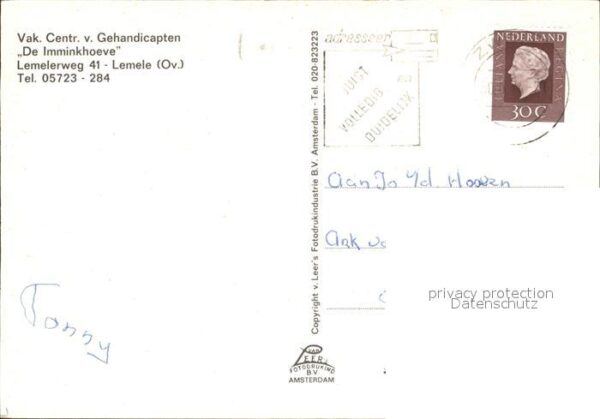 Vak. Centr. v. Gehandicapten
„De Imminkhoeve"
Lemelerweg 41 - Lemele (Ov.)
Tel. 05723 - 284
Copyright v. Leer's Fotodrukindustrie B.V. Amsterdam - Tel. 020-823223
adresseer
JUIST
VOLLEDIG
DUIDELIJK
NEDERLAND
JULIANA REGINA
30 C
Aan Jo v/d
Ark
Tonny
VAN
LEER
FOTODRUKIND
B.V
AMSTERDAM
privacy protection
Datenschutz